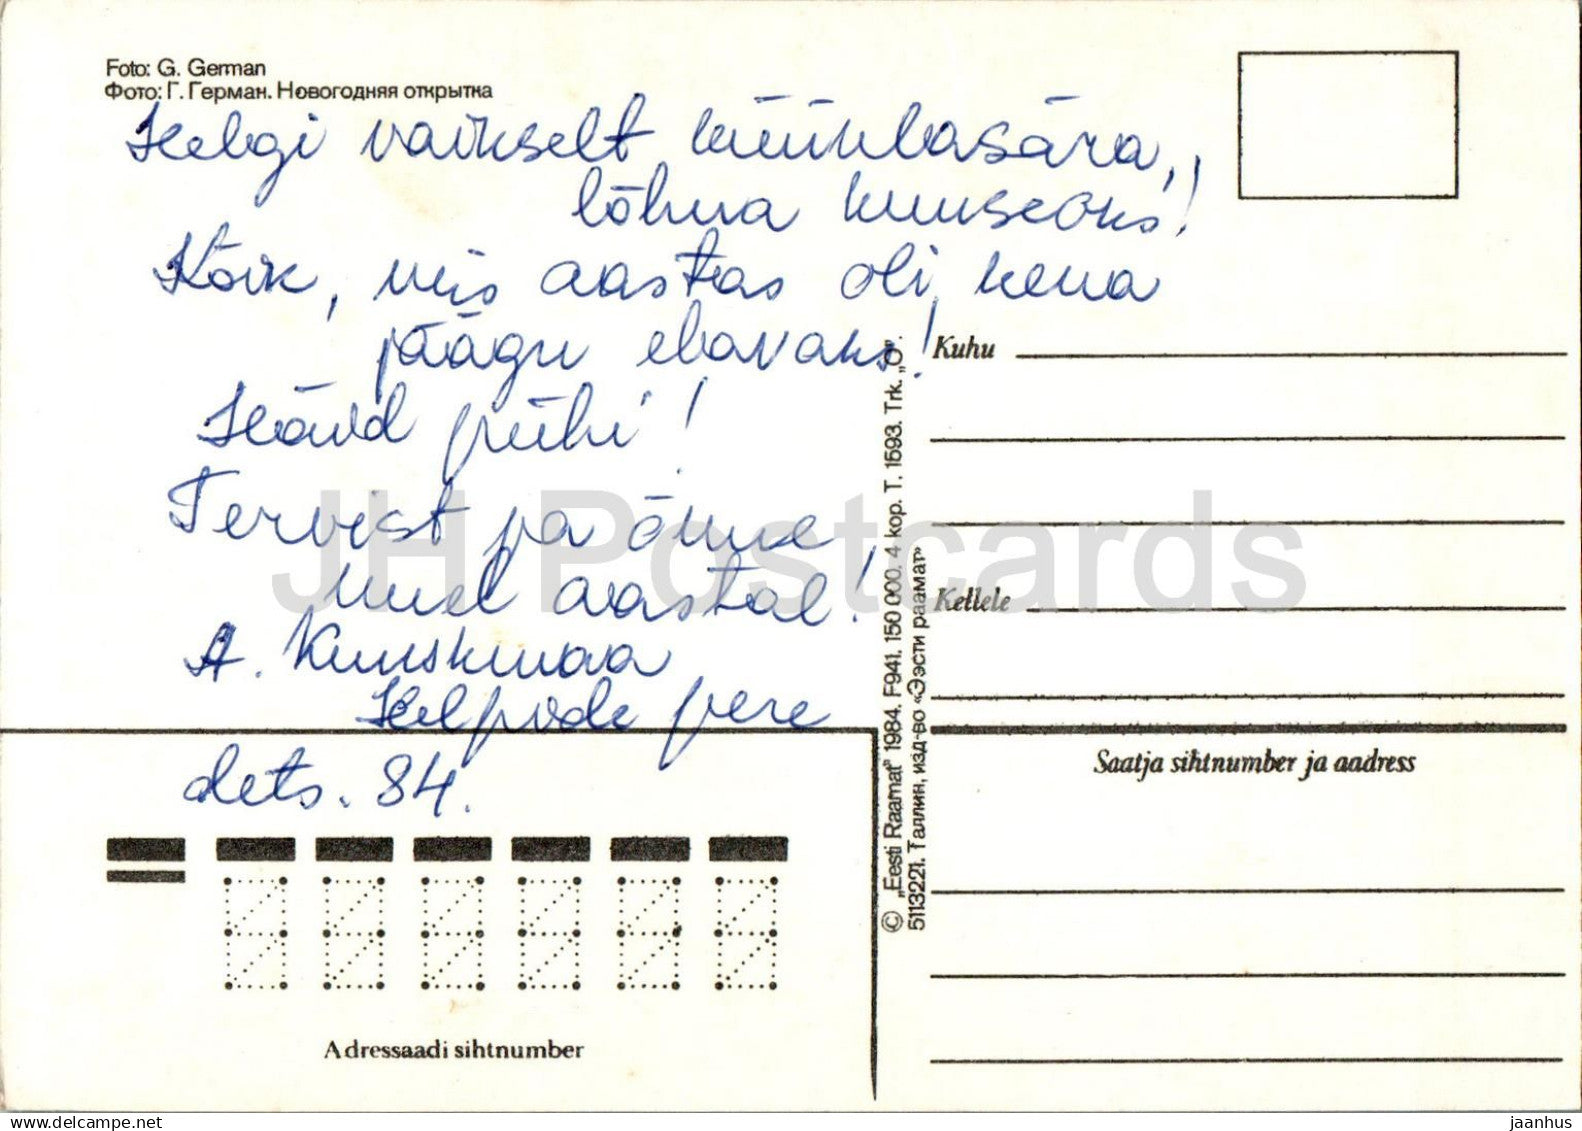 Foto: G. German
Фото: Г. Герман. Новогодняя открытка
Helgi vaikselt küünlasära,
lõhna kuuseoks!
Kõik, mis aastas oli kena
jäägu elavaks!
Häid pühi!
Tervist ja õnne
uuel aastal!
A. Kuuskmaa
pere
dets. 84.
Kuhu
Kellele
Saatja sihtnumber ja aadress
Adressaadi sihtnumber
© „Eesti Raamat” 1984. F941. 150 000. 4 kop. T. 1593. Trk. „O”.
5113221. Таллин, изд-во «Ээсти раамат»
JH Postcards
www.delcampe.net
jaanhus